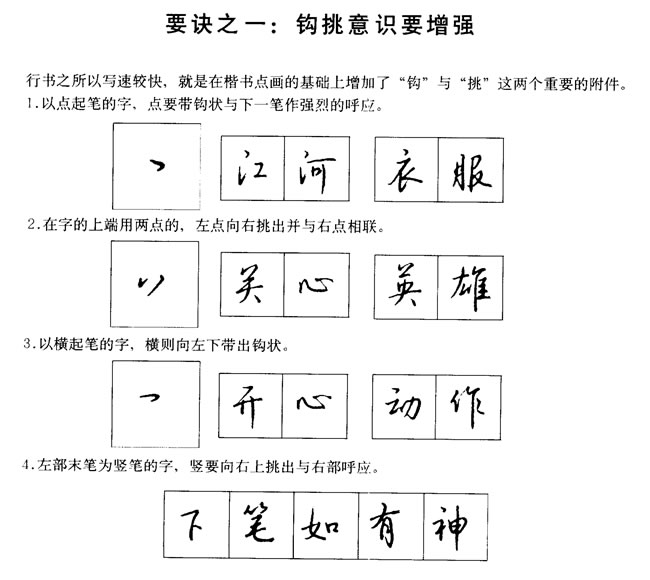 要诀之一：钩挑意识要增强
行书之所以写速较快，就是在楷书点画的基础上增加了“钩”与“挑”这两个重要的附件。
1.以点起笔的字，点要带钩状与下一笔作强烈的呼应。
江河 衣服
2.在字的上端用两点的，左点向右挑出并与右点相联。
关心 英雄
3.以横起笔的字，横则向左下带出钩状。
开心 动作
4.左部末笔为竖笔的字，竖要向右上挑出与右部呼应。
下笔如有神